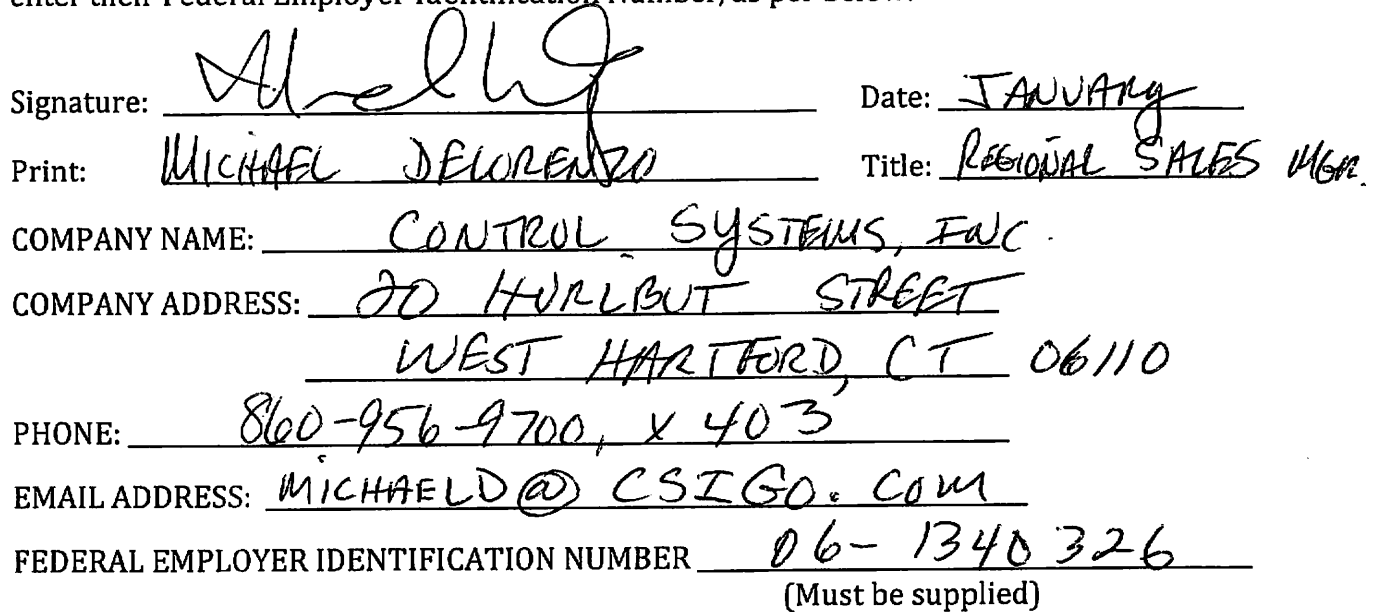 enter their Federal Employer Identification Number, as per below.
Signature: Date: JANUARY
Print: MICHAEL DELORENZO Title: REGIONAL SALES MGR.
COMPANY NAME: CONTROL SYSTEMS, INC.
COMPANY ADDRESS: 20 HURLBUT STREET
WEST HARTFORD, CT 06110
PHONE: 860-956-9700, X 403
EMAIL ADDRESS: MICHAELD@CSIGO.COM
FEDERAL EMPLOYER IDENTIFICATION NUMBER 06-1340326
(Must be supplied)